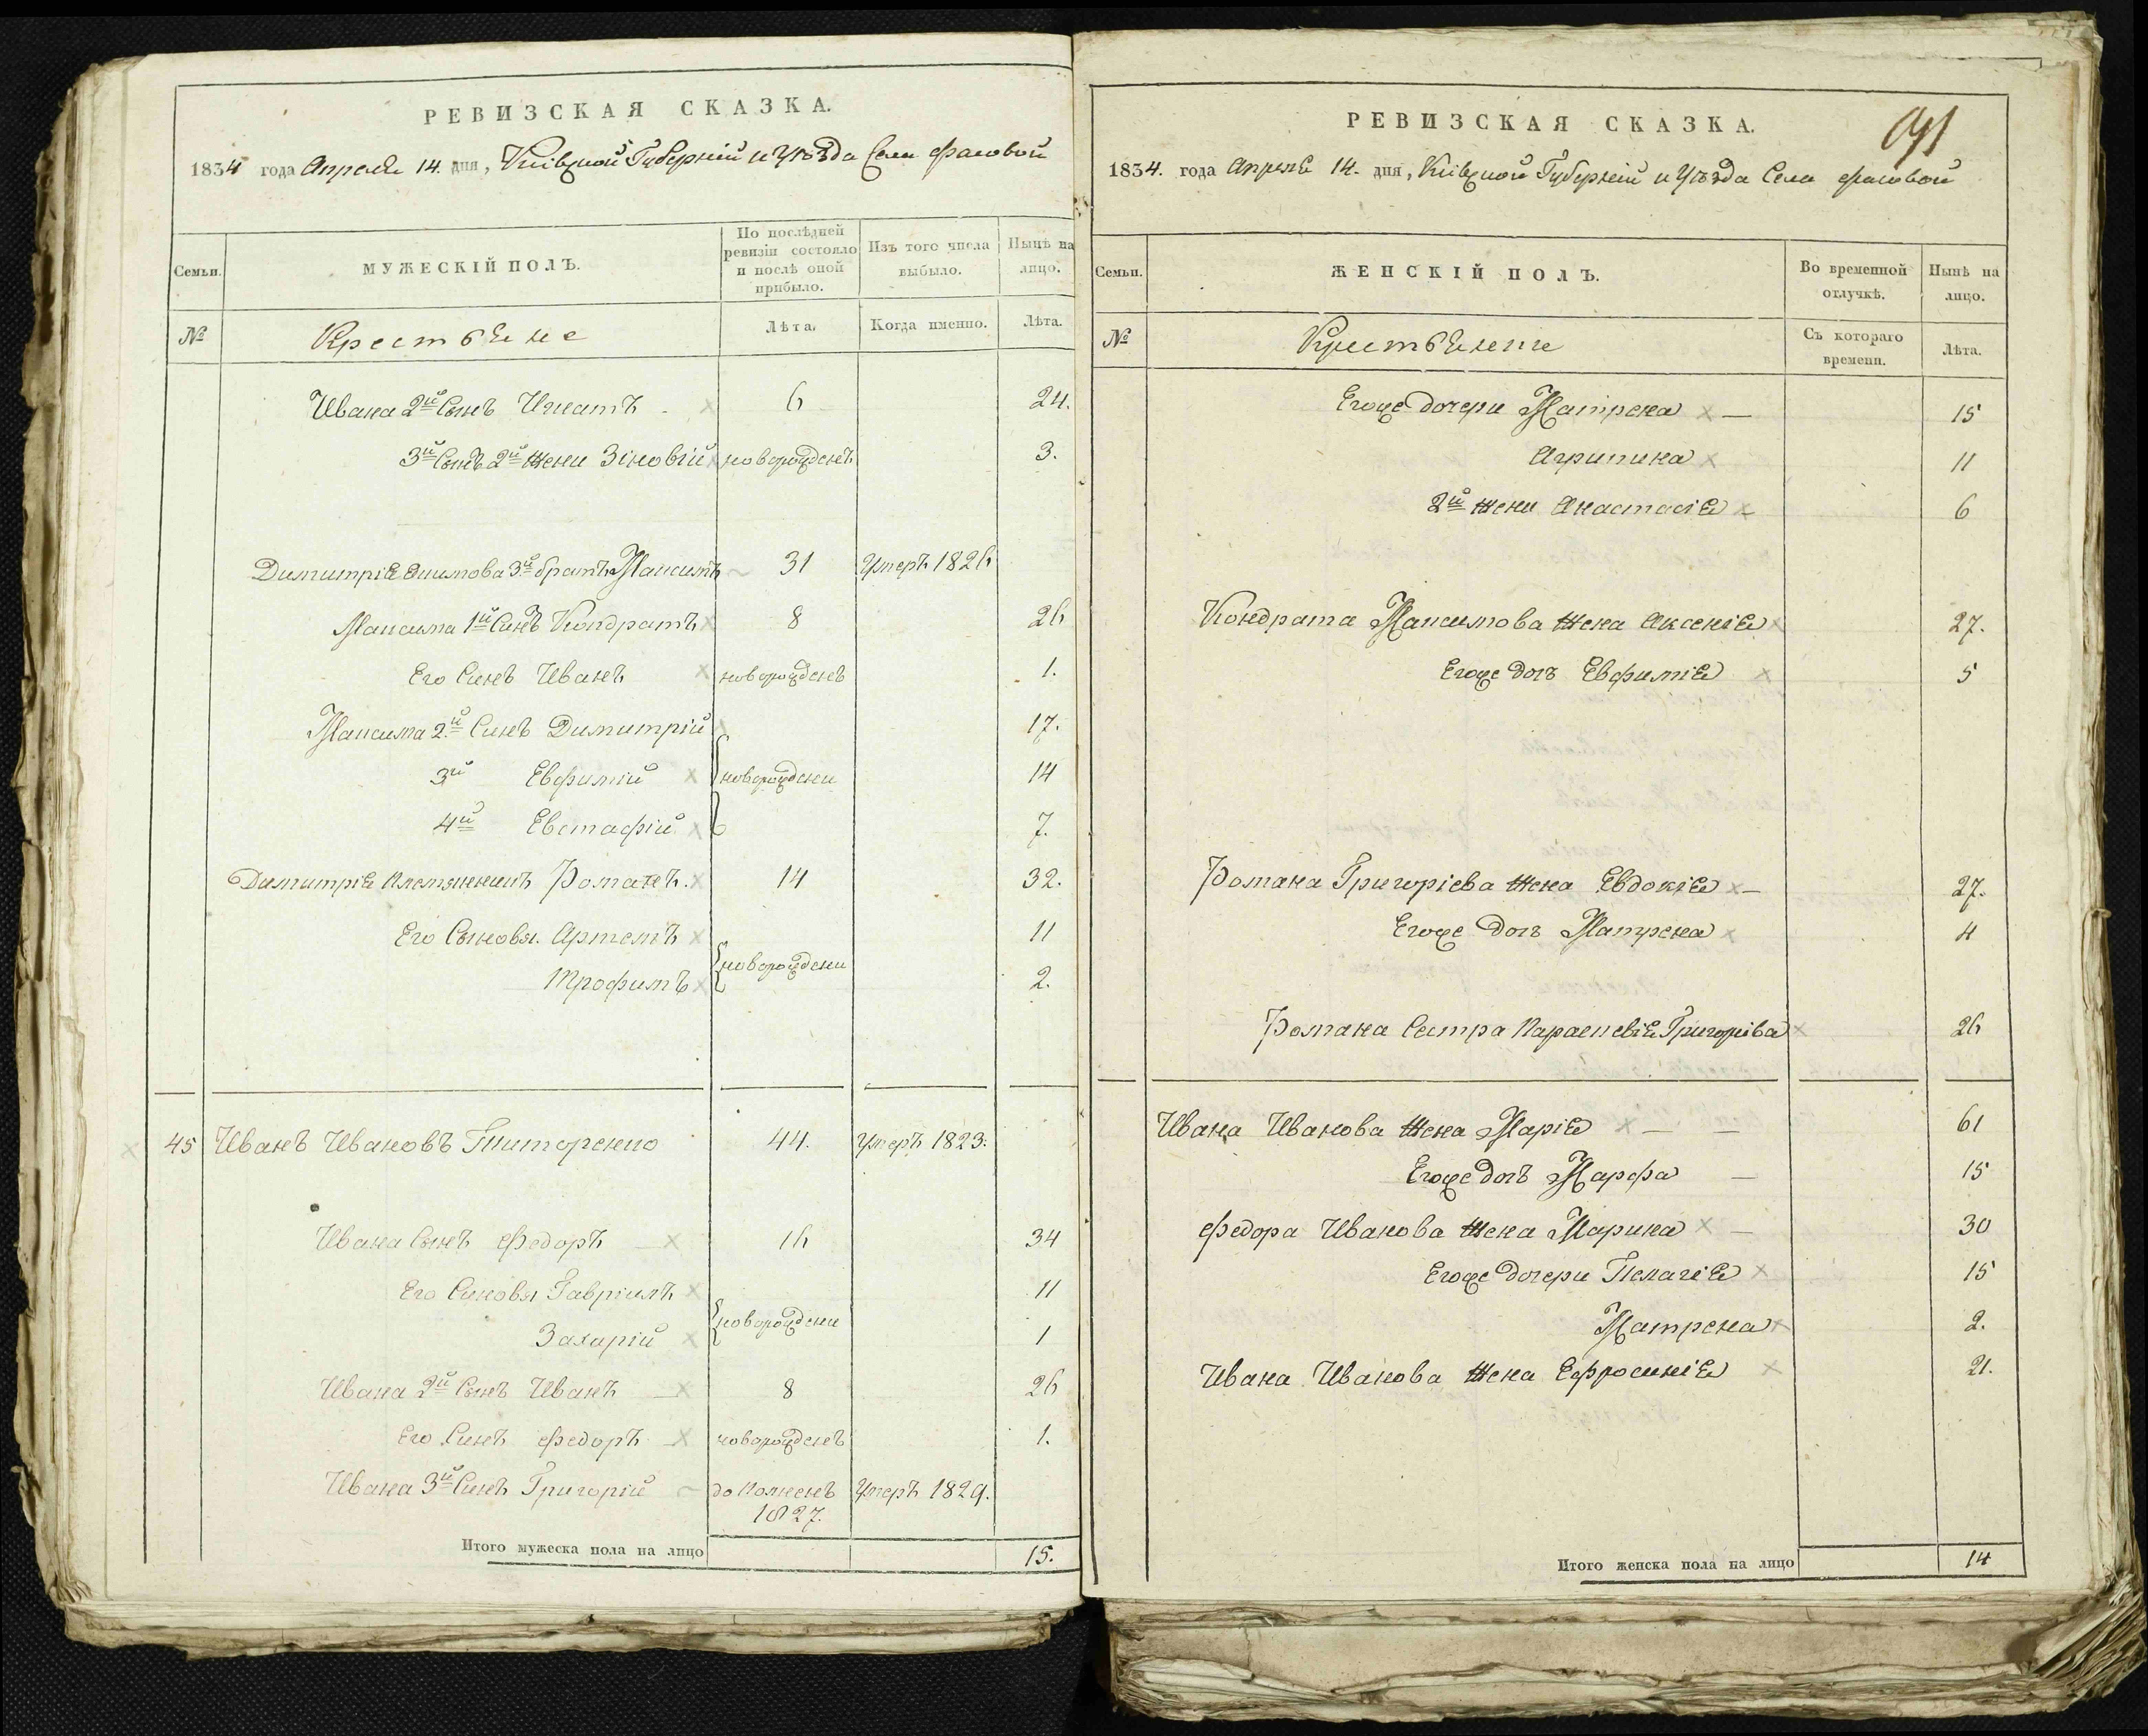 РЕВИЗСКАЯ СКАЗКА.
1834 года Апреля 14. дня, Кіевской Губерніи и Уѣзда Села Фасовой
Семьи.
МУЖЕСКІЙ ПОЛЪ.
По послѣдней ревизіи состояло и послѣ оной прибыло.
Изъ того числа выбыло.
Нынѣ на лицо.
№
Крестьяне
Лѣта.
Когда именно.
Лѣта.
Ивана 2й Сынъ Игнатъ 6 24.
3й Сынъ 2й жени Зіновій новорожденъ 3.
Димитрія Якимова 3й братъ Максимъ 31 Умеръ 1826
Максима 1й Синъ Кондратъ 8 26
Его Синъ Иванъ новорожденъ 1.
Максима 2й Синъ Димитрій 17.
3й Евфимій новорождени 14
4й Евстафій 7.
Димитрія племянникъ Романъ. 14 32.
Его Сыновя. Артемъ 11
новорождени
Трофимъ 2.
45 Иванъ Ивановъ Титоренко 44. Умеръ 1823.
Ивана Сынъ Федоръ 16 34
Его Синовя Гавріилъ 11
новорождени
Захарій 1
Ивана 2й Сынъ Иванъ 8 26
Его Синъ Федоръ новорожденъ 1.
Ивана 3й Синъ Григорій Умеръ 1829.
1827.
Итого мужеска пола на лицо 15.
РЕВИЗСКАЯ СКАЗКА.
91
1834. года Апреля 14. дня, Кіевской Губерніи и Уѣзда Села Фасовой
Семьи.
ЖЕНСКІЙ ПОЛЪ.
Во временной отлучкѣ.
Нынѣ на лицо.
№
Крестьяне
Съ котораго времени.
Лѣта.
Егоже дочери Матрена 15
Агрипина 11
2й жени Анастасія 6
Кондрата Максимова жена Аксенія 27.
Егоже дочъ Евфимія 5
Романа Григоріева жена Евдокія 27.
Егоже дочъ Матрена 4
Романа Сестра Параскевія Григоріва 26
Ивана Иванова жена Марія 61
Егоже дочъ Марфа 15
Федора Иванова жена Марина 30
Егоже дочери Пелагія 15
Матрена 2.
Ивана Иванова жена Ефросинія 21.
Итого женска пола на лицо 14